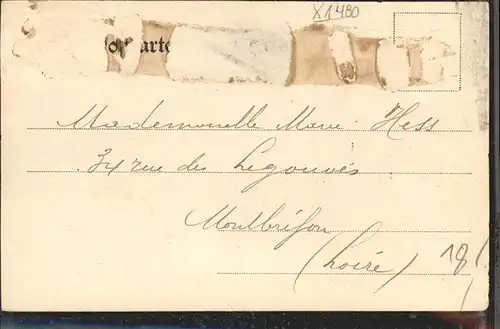 X1480
arte
Mademoiselle Marie Hess
34 rue des Legouvés
Montbrison
(Loire)
18